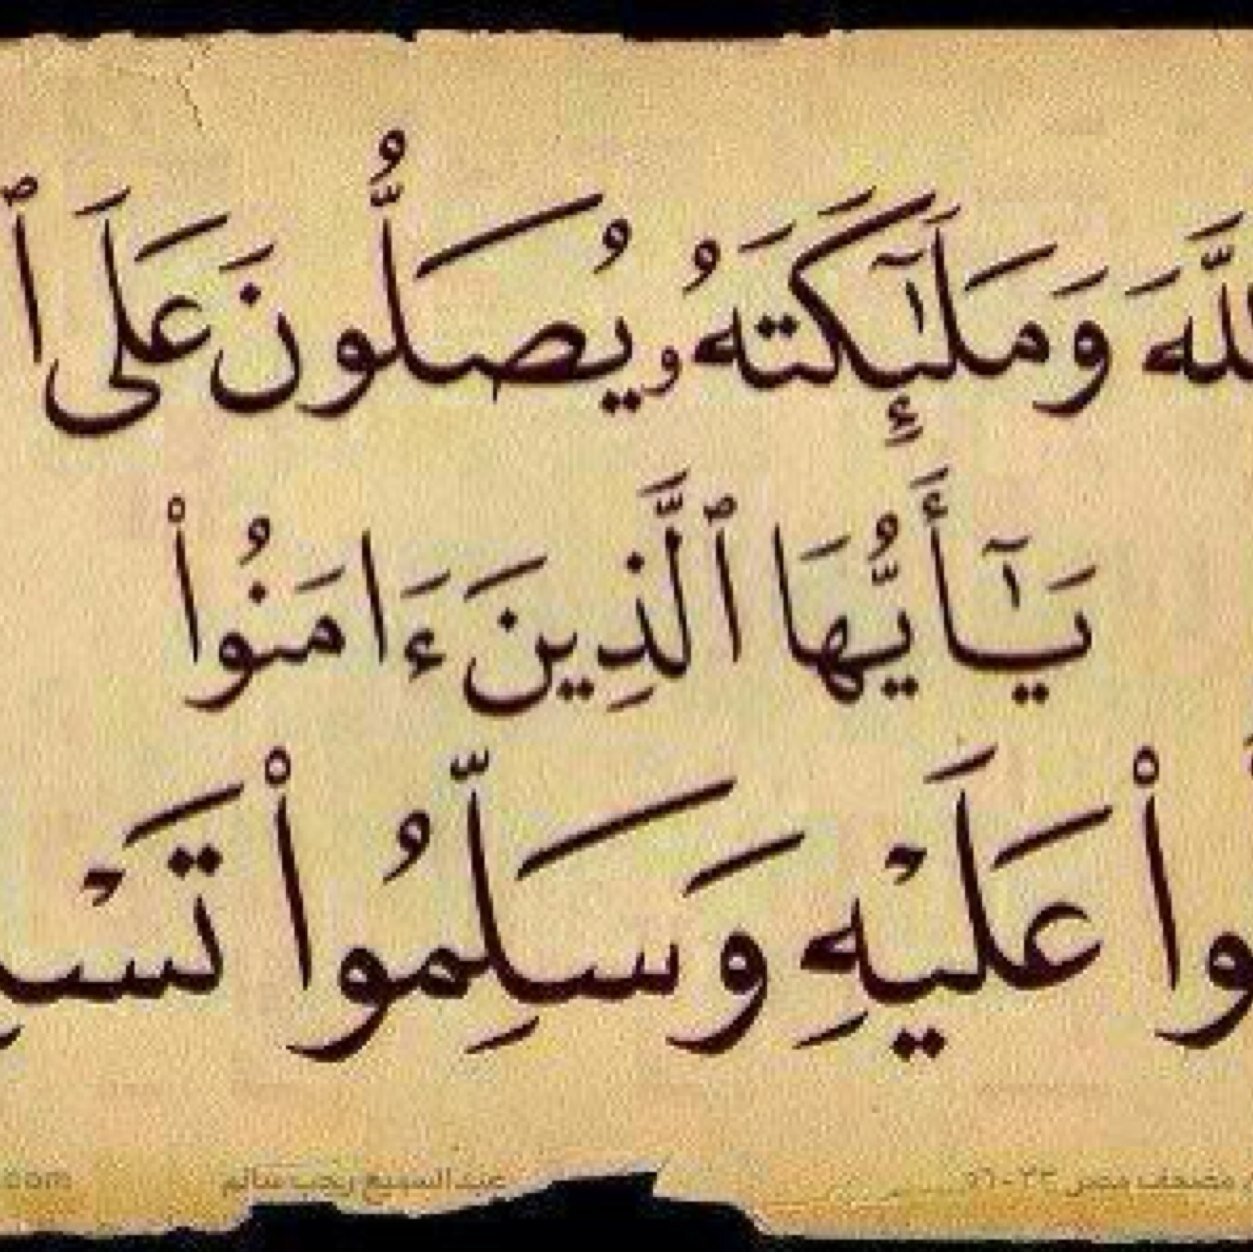 للَّهَ وَمَلَٰٓئِكَتَهُۥ يُصَلُّونَ عَلَى ٱ
يَٰٓأَيُّهَا ٱلَّذِينَ ءَامَنُوا۟
وا۟ عَلَيْهِ وَسَلِّمُوا۟ تَسْ
مصحف مصر ٢٣-٥٦ عبدالسميع رجب سالم .com